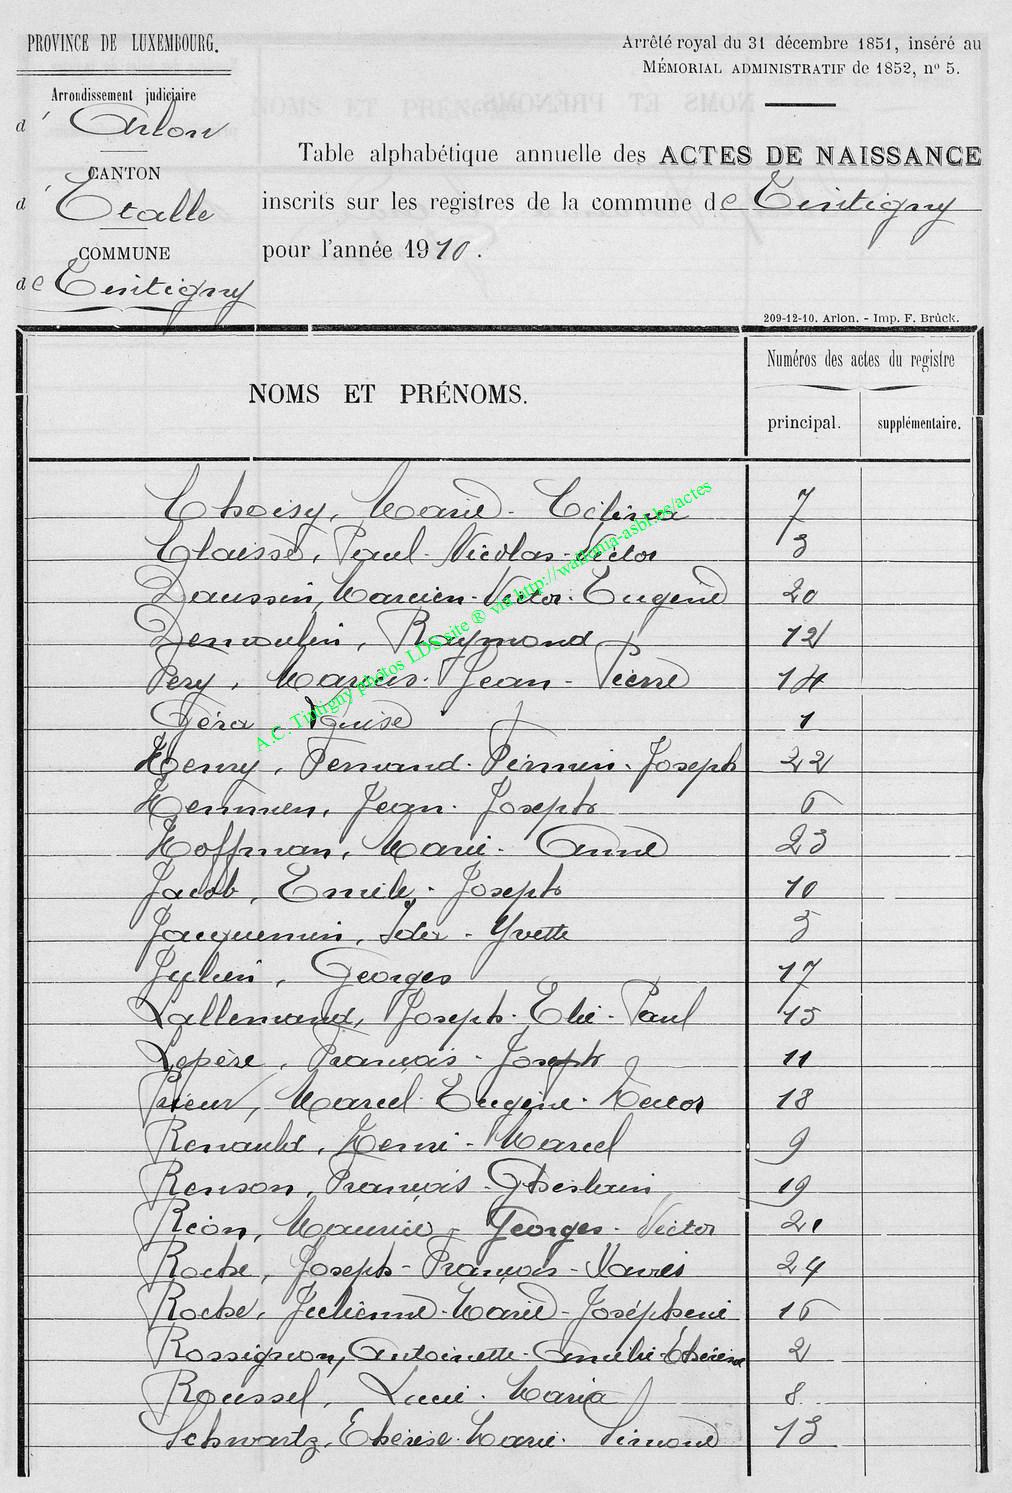 PROVINCE DE LUXEMBOURG.
Arrêté royal du 31 décembre 1851, inséré au
MÉMORIAL ADMINISTRATIF de 1852, nº 5.
Arrondissement judiciaire
d' Arlon
CANTON
d' Etalle
COMMUNE
de Tintigny
Table alphabétique annuelle des ACTES DE NAISSANCE
inscrits sur les registres de la commune de Tintigny
pour l'année 1910.
209-12-10. Arlon. - Imp. F. Brück.
NOMS ET PRÉNOMS.
Numéros des actes du registre
principal.
supplémentaire.
Choisy, Marie - 7
Claisse, Paul - Nicolas - Victor 3
Daussin, Marcien - Victor - Eugène 20
Demoulin, Raymond 12
Fery, Marcis - Jean - Pierre 14
Géra Louise 1
Henry, Fernand - Firmin - Joseph 22
Jean - Joseph 6
Hoffman, Marie - Anne 23
Jacob, Emile - Joseph 10
Jacquemin, Ida - Yvette 5
Julien, Georges 17
Lallemand, Joseph - Elie - Paul 15
Lepère, François - Joseph 11
Prieur, Marcel - Eugène - Hector 18
Renauld, Henri - Marcel 9
Renson, François - Ghislain 19
Réon, Maurice - Georges - Victor 21
Roche, Joseph - François - Xavier 24
Roche, Julienne - Marie - Joséphine 16
Rossignon, Antoinette - Amélie - Thérèse 2
Roussel, Lucie - Maria 8
Schwartz, Thérèse - Marie - Simone 13
A.C. Tintigny photos LDS site ® via http://wallonia-asbl.be/actes